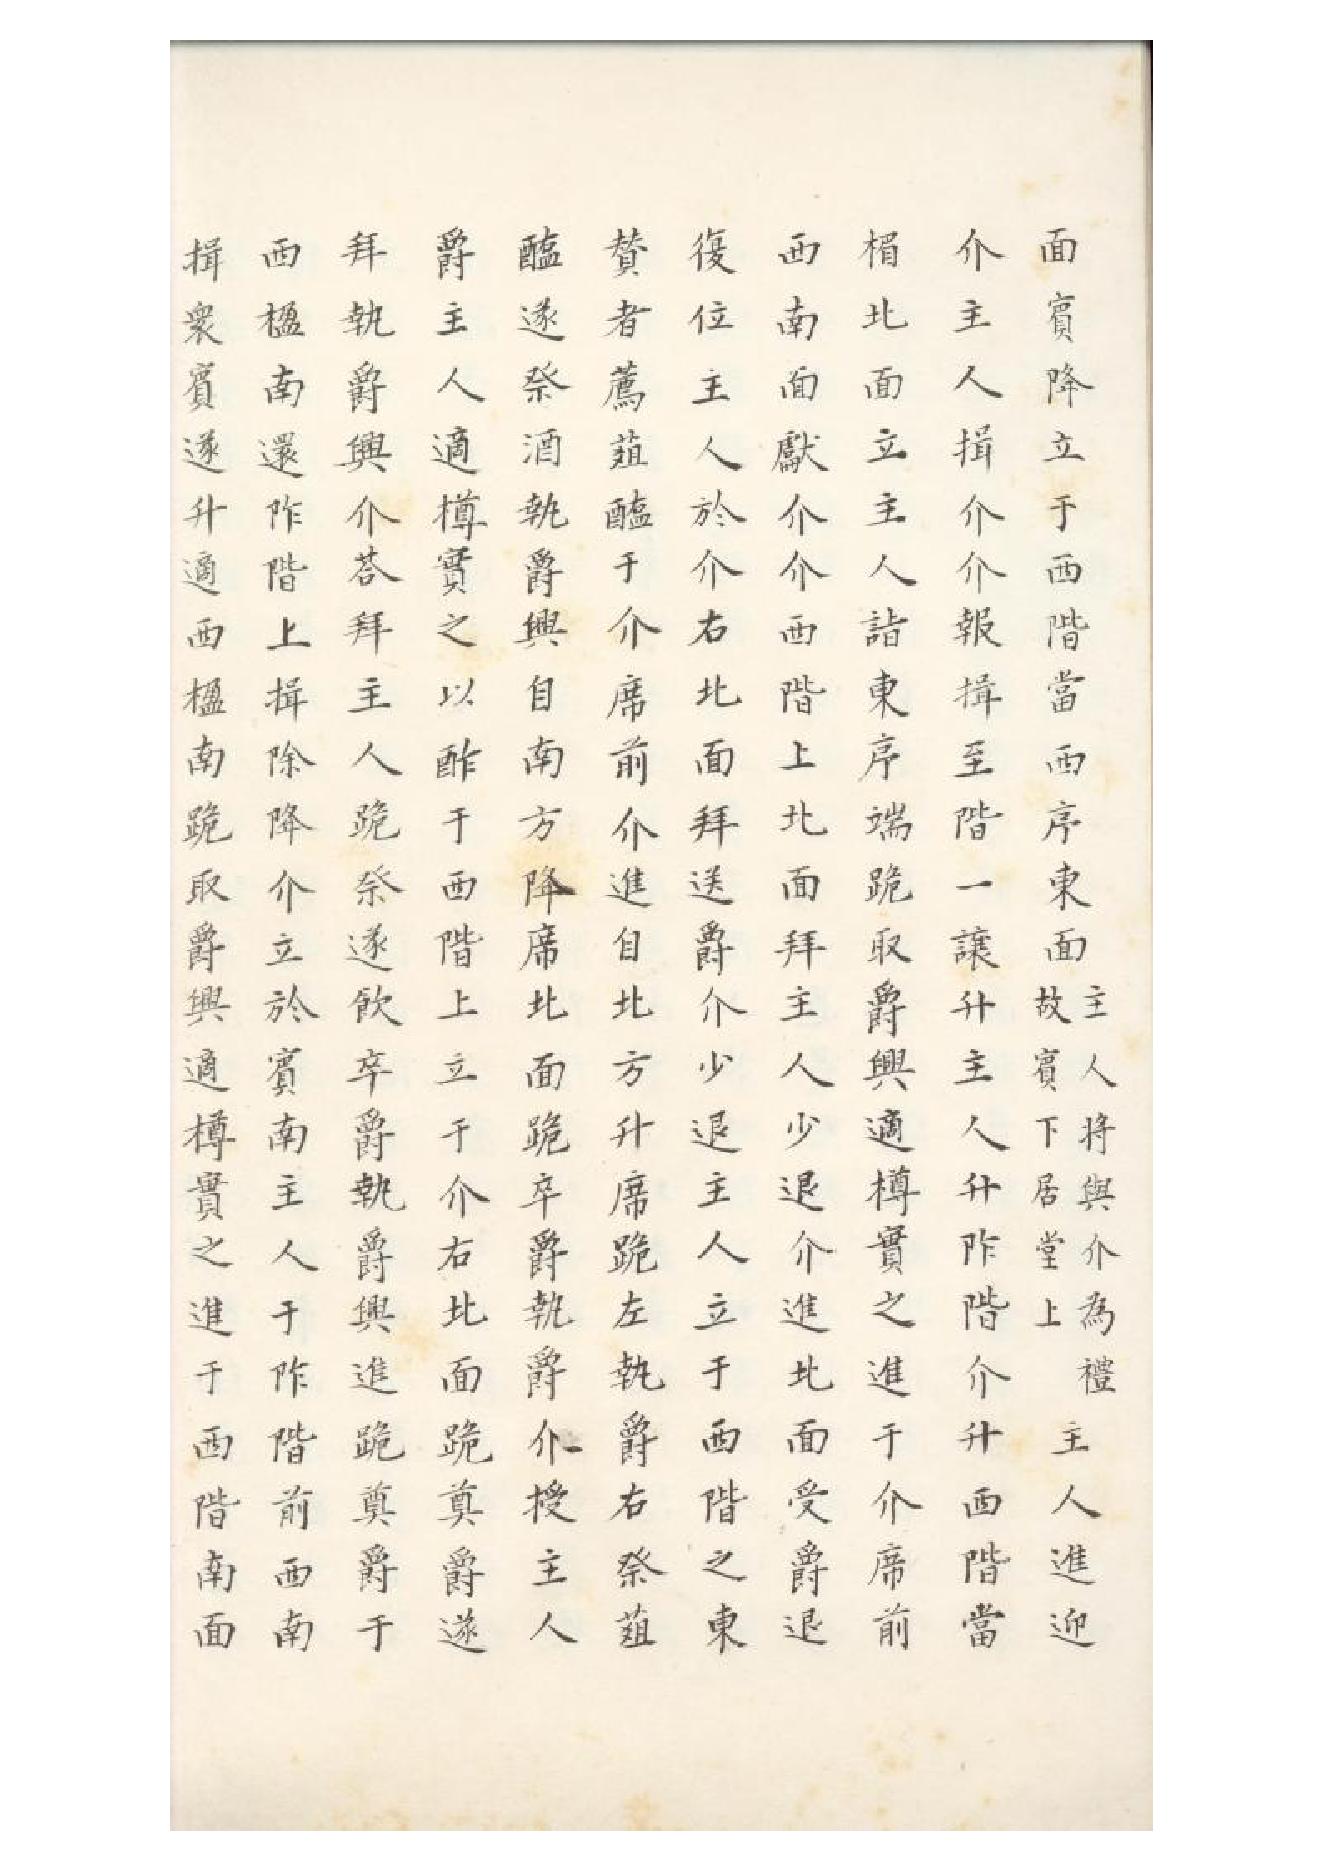 面賓降立于西階當西序東面主人將與介為禮故賓下居堂上主人進迎
介主人揖介介報揖至階一讓升主人升阼階介升西階當
楣北面立主人詣東序端跪取爵興適樽實之進于介席前
西南面獻介介西階上北面拜主人少退介進北面受爵退
復位主人於介右北面拜送爵介少退主人立于西階之東
贊者薦葅醢于介席前介進自北方升席跪左執爵右祭葅
醢遂祭酒執爵興自南方降席北面跪卒爵執爵介授主人
爵主人適樽實之以酢于西階上立于介右北面跪奠爵遂
拜執爵興介荅拜主人跪祭遂飲卒爵執爵興進跪奠爵于
西楹南還阼階上揖除降介立於賓南主人于阼階前西南
揖衆賓遂升適西楹南跪取爵興適樽實之進于西階南面